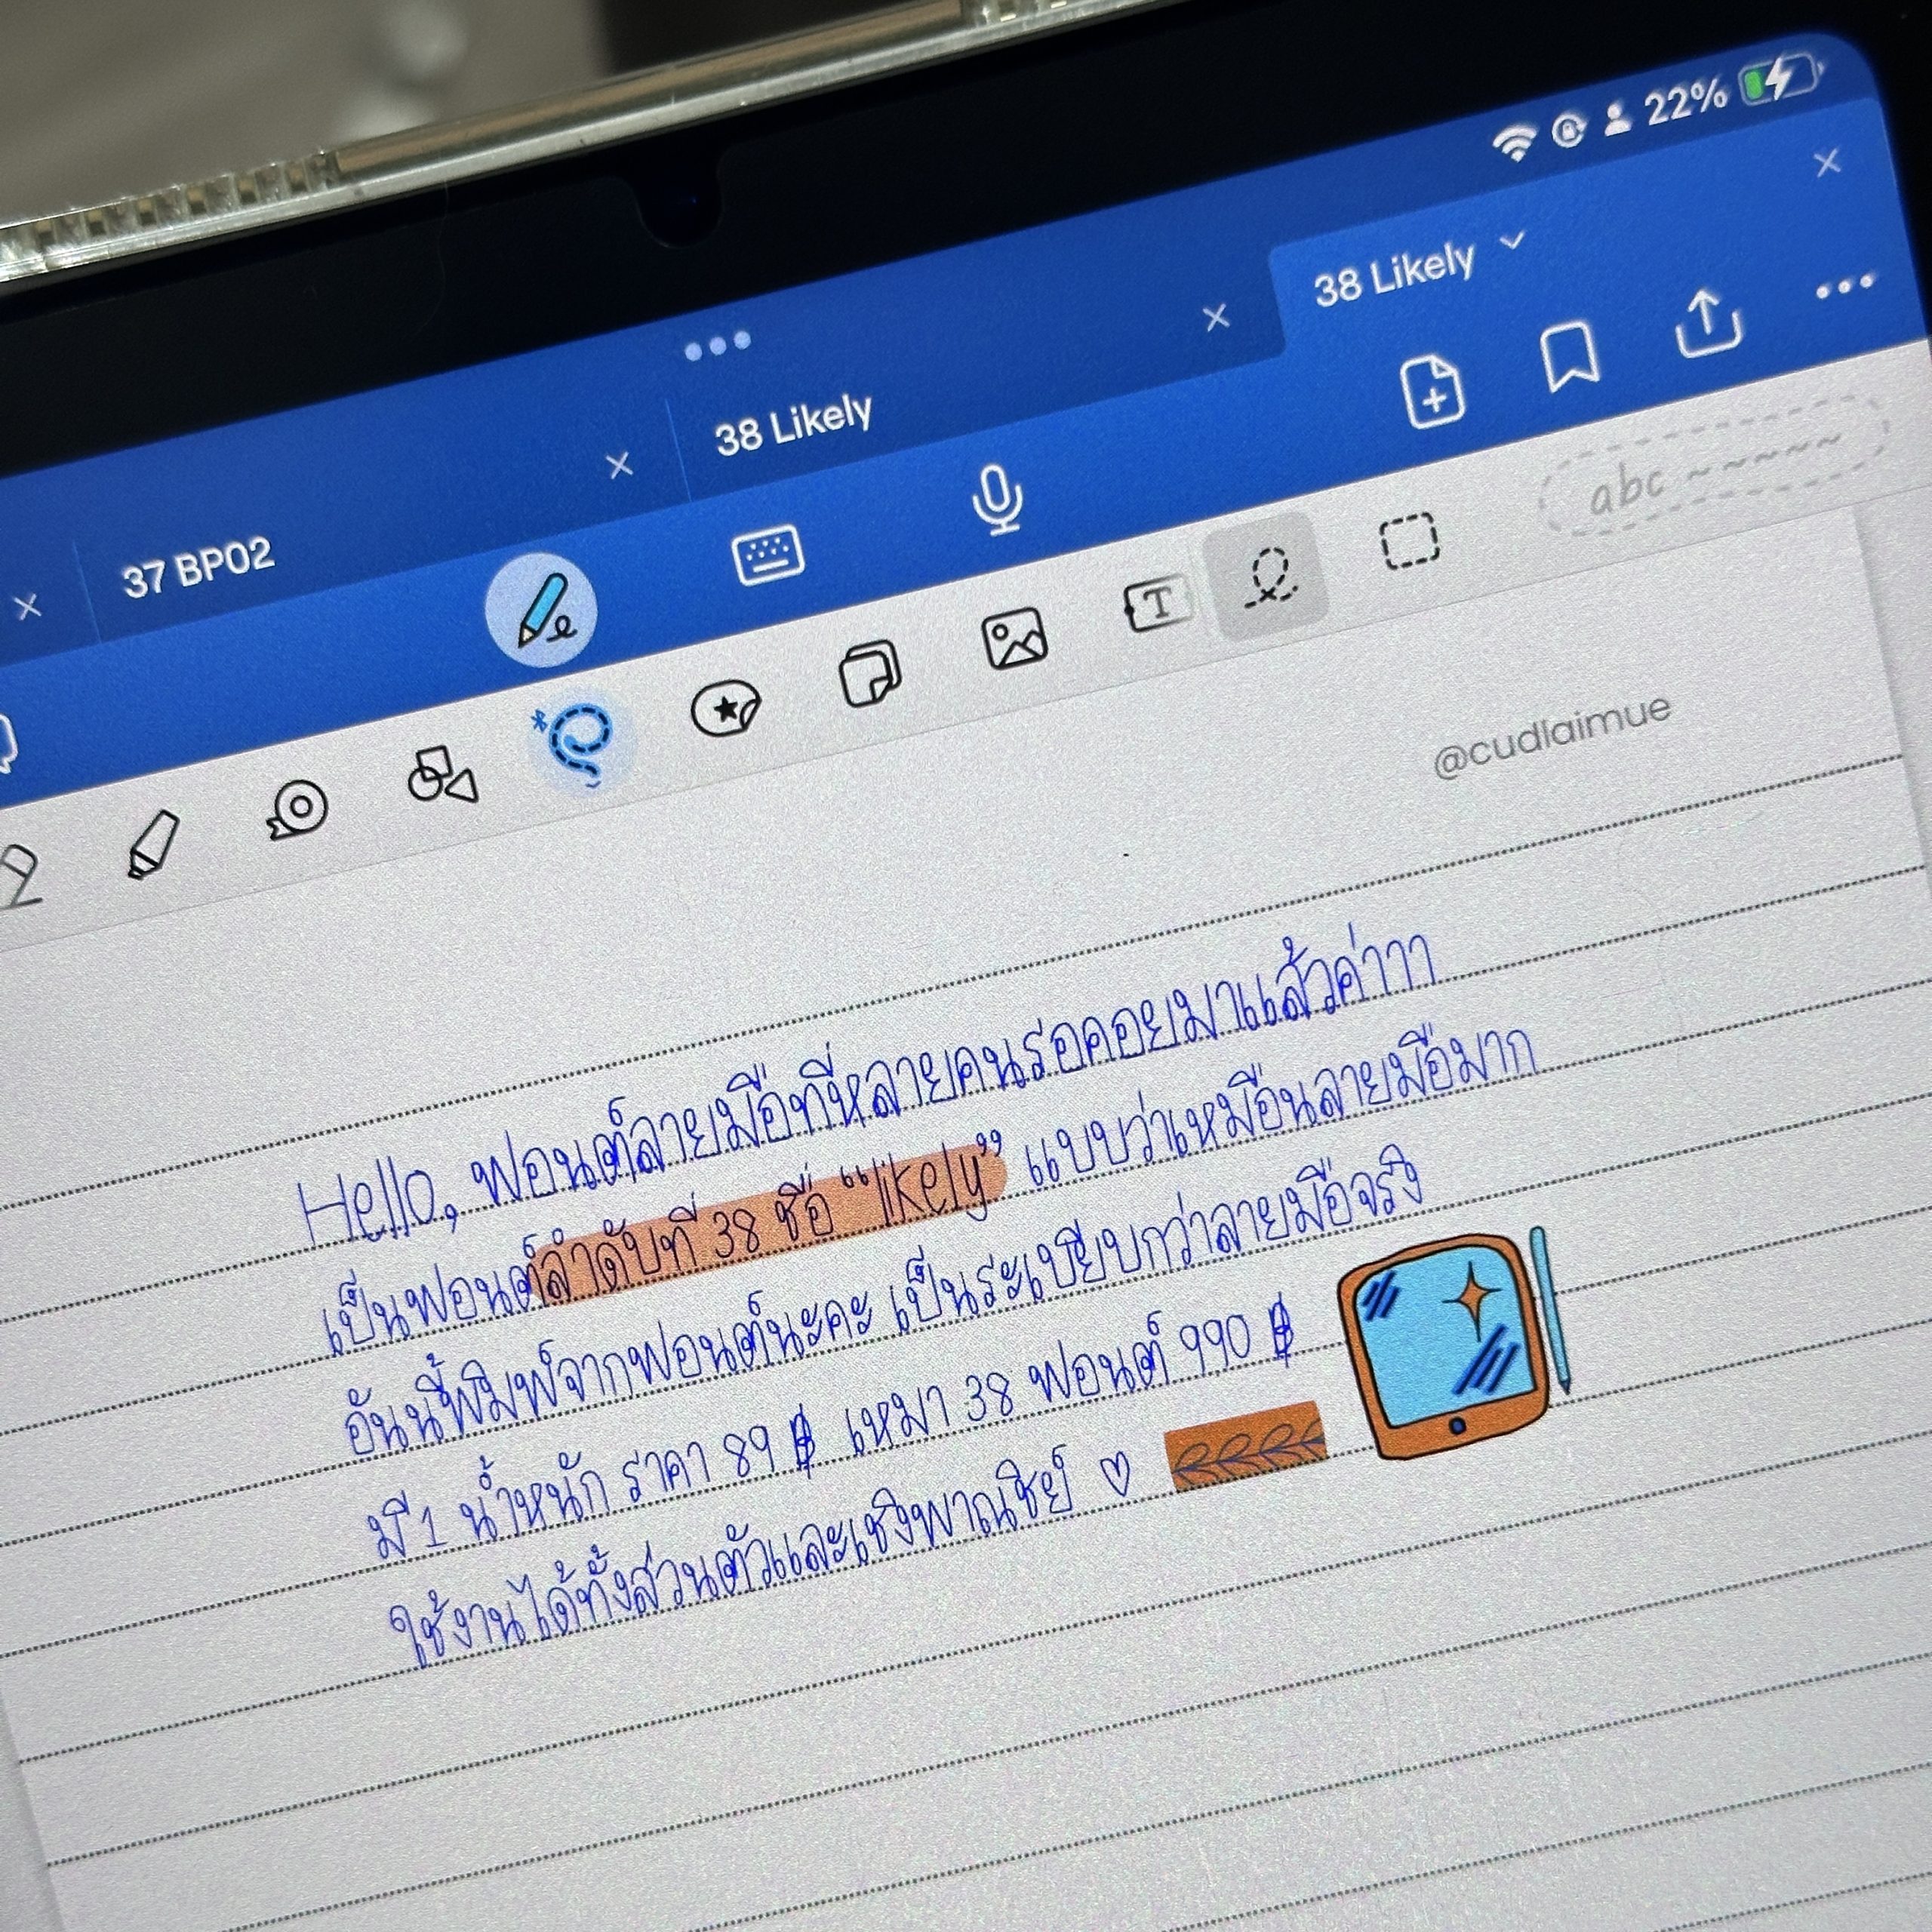 22%
38 Likely
38 Likely
37 BP02
abc ~~~~~
T
@cudlaimue
Hello, ฟอนต์ลายมือที่หลายคนรอคอยมาแล้วค่าาา
เป็นฟอนต์ลำดับที่ 38 ชื่อ “likely” แบบว่าเหมือนลายมือมาก
อันนี้พิมพ์จากฟอนต์นะคะ เป็นระเบียบกว่าลายมือจริง
มี 1 น้ำหนัก ราคา 89 ฿ เหมา 38 ฟอนต์ 990 ฿
ใช้งานได้ทั้งส่วนตัวและเชิงพาณิชย์ ♡